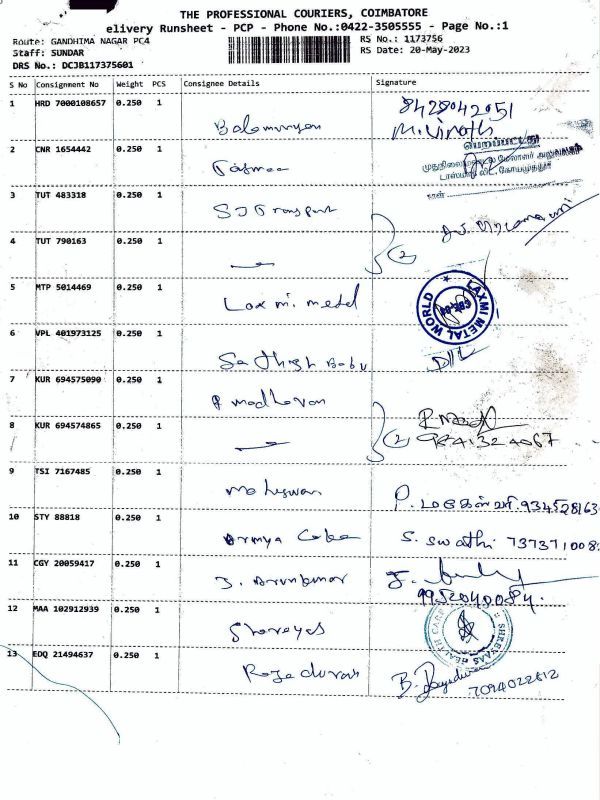 THE PROFESSIONAL COURIERS, COIMBATORE
elivery Runsheet - PCP - Phone No.:0422-3505555 - Page No.:1
Route: GANDHIMA NAGAR PC4
RS No.: 1173756
Staff: SUNDAR
RS Date: 20-May-2023
DRS No.: DCJB117375601
S No Consignment No Weight PCS Consignee Details Signature
1 HRD 7000108657 0.250 1 8428042051
Balamurugan M.Vinoth
2 CNR 1654442 0.250 1 பெறப்பட்டது
Tasmac
நாள்
3 TUT 483318 0.250 1 SJ Transport
4 TUT 790163 0.250 1 (2)
5 MTP 5014469 0.250 1 Laxmi metal LAXMI METAL WORLD
6 VPL 401973125 0.250 1
Sathish Babu
7 KUR 694575090 0.250 1 P madhavan
8 KUR 694574865 0.250 1 (2) 9841324067
9 TSI 7167485 0.250 1
Maheswari P. மகேஸ்வரி. 934528163
10 STY 88818 0.250 1
Cake S. Swathi 737371008
11 CGY 20059417 0.250 1 J. Arunkumar
9952040084.
12 MAA 102912939 0.250 1
Shreyas SHREYAAS HEALTH CARE
13 EDQ 21494637 0.250 1
Rajadurai B. 7094022612